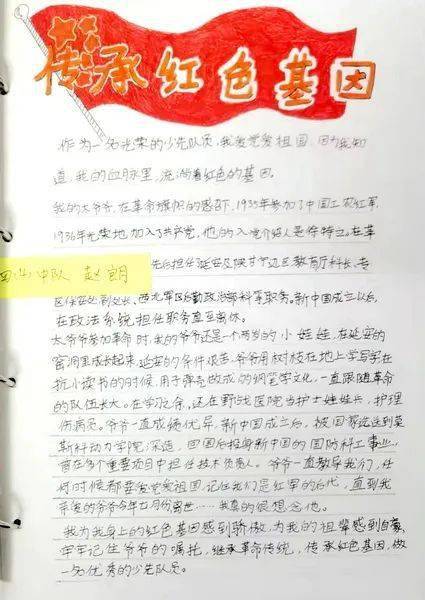 传承红色基因
作为一名光荣的少先队员,我爱党爱祖国,因为我知
道,我的血脉里,流淌着红色的基因。
我的太爷爷,在革命旗帜的感召,1935年参加了中国工农红军,
1936年光荣地加入了共产党,他的入党介绍人是佟特立。在革
四(4)中队 赵朗
先后担任延安及陕甘宁边区教育厅科长、专
区保安处副处长、西北军区后勤政治部科等职务。新中国成立以后,
在政法系统担任职务直至离休。
太爷爷参加革命时,我的爷爷还是一个两岁的小娃娃,在延安的
窑洞里成长起来,延安的条件很差,爷爷用树枝在地上学写字,在
抗小读书的时候,用子弹壳做成的钢笔学文化,一直跟随革命
的队伍长大。在学习之余,还在野战医院当护士娃娃兵,护理
伤病员。爷爷一直成绩优异,新中国成立后,被国家选送到莫
斯科动力学院深造,回国后投身新中国的国防科工事业,
曾在多个重要项目中担任技术负责人。爷爷一直教导我们,任
何时候都要爱党爱祖国,记住我们是红军的后代,直到我
亲爱的爷爷今年七月份离世……我真的很想念他。
我为我身上的红色基因感到骄傲,为我的祖辈感到自豪,
牢牢记住爷爷的嘱托,继承革命传统,传承红色基因,做
一名优秀的少先队员。